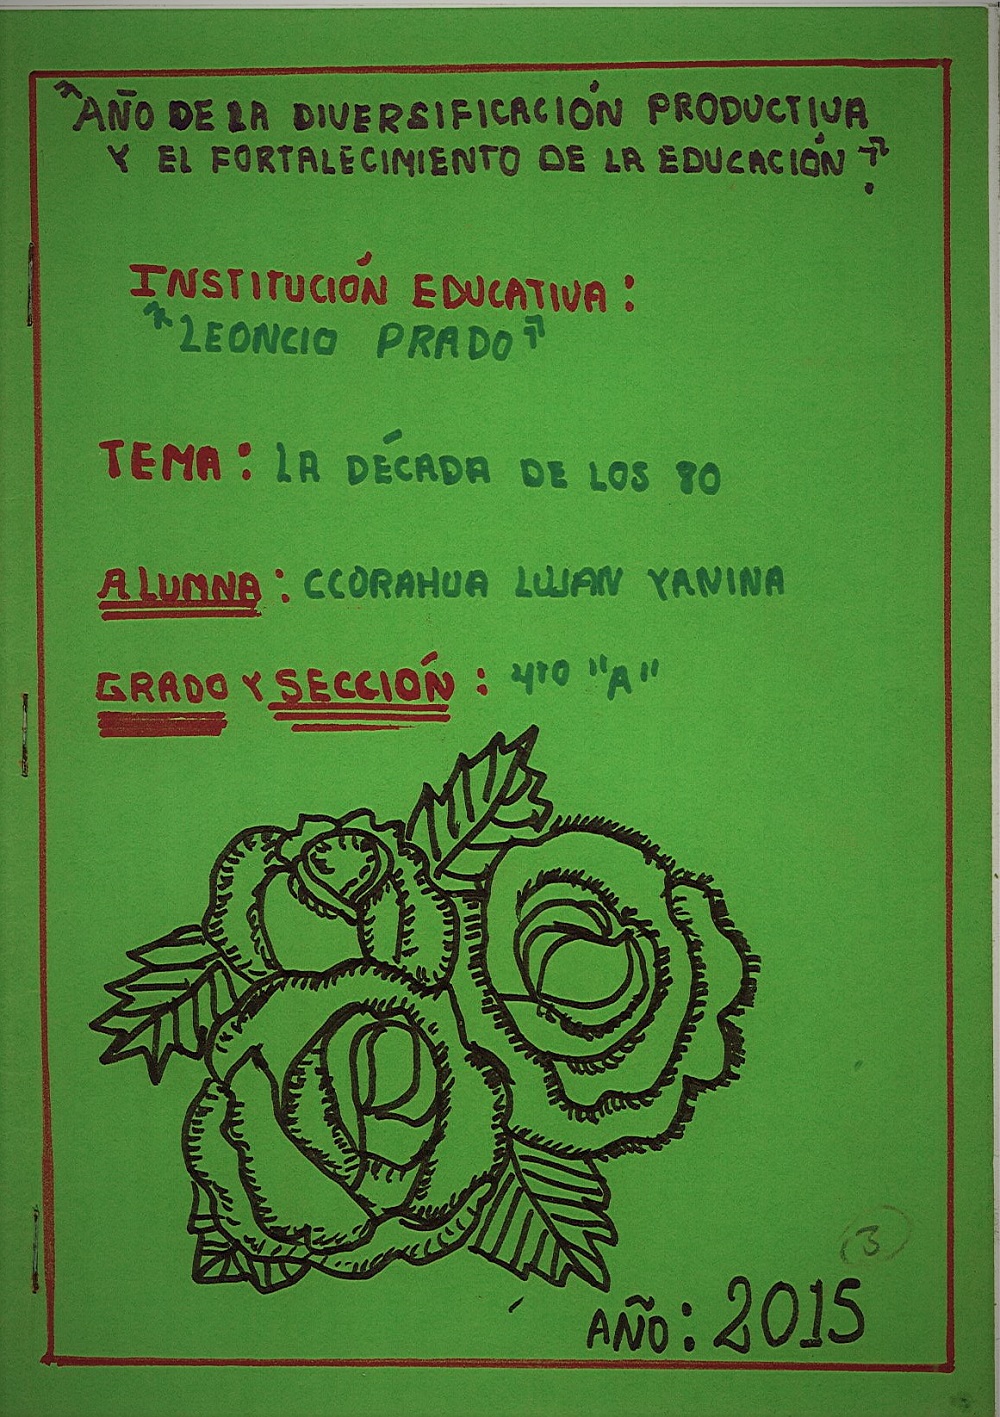 "AÑO DE LA DIVERSIFICACIÓN PRODUCTIVA
Y EL FORTALECIMIENTO DE LA EDUCACIÓN".
INSTITUCIÓN EDUCATIVA:
"LEONCIO PRADO"
TEMA: LA DÉCADA DE LOS 80
ALUMNA: CCORAHUA LUJAN YANINA
GRADO Y SECCIÓN: 4TO "A"
3
AÑO: 2015